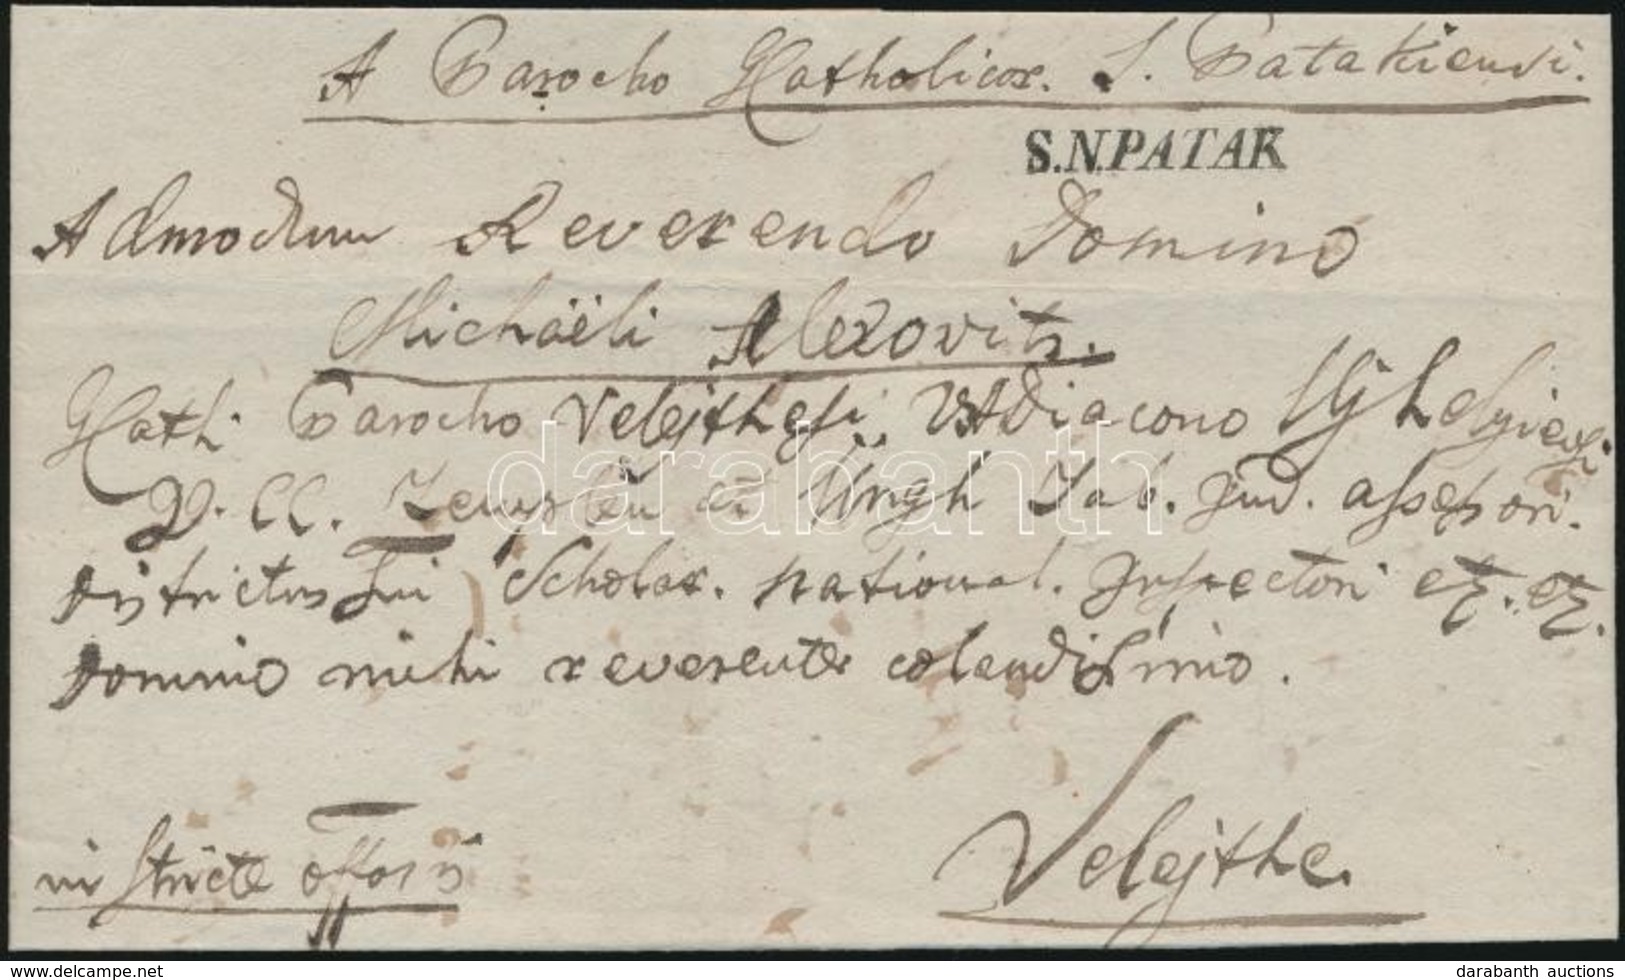 A Parocho Catholicor. S. Patakiensi.
S.N.PATAK
Admodum Reverendo Domino
Michaëli Alexovits.
Cath. Parocho Velejthesi, VADiacono Ujhelyiensi
I. CC. Zemplén et Ungh Tab. Jud. assessori.
Districtus sui Scholar. national. Inspectori etz. etz.
Domino mihi reverenter colendissimo.
Velejthe.
in stricte offosis
darabanth
darabanth auctions